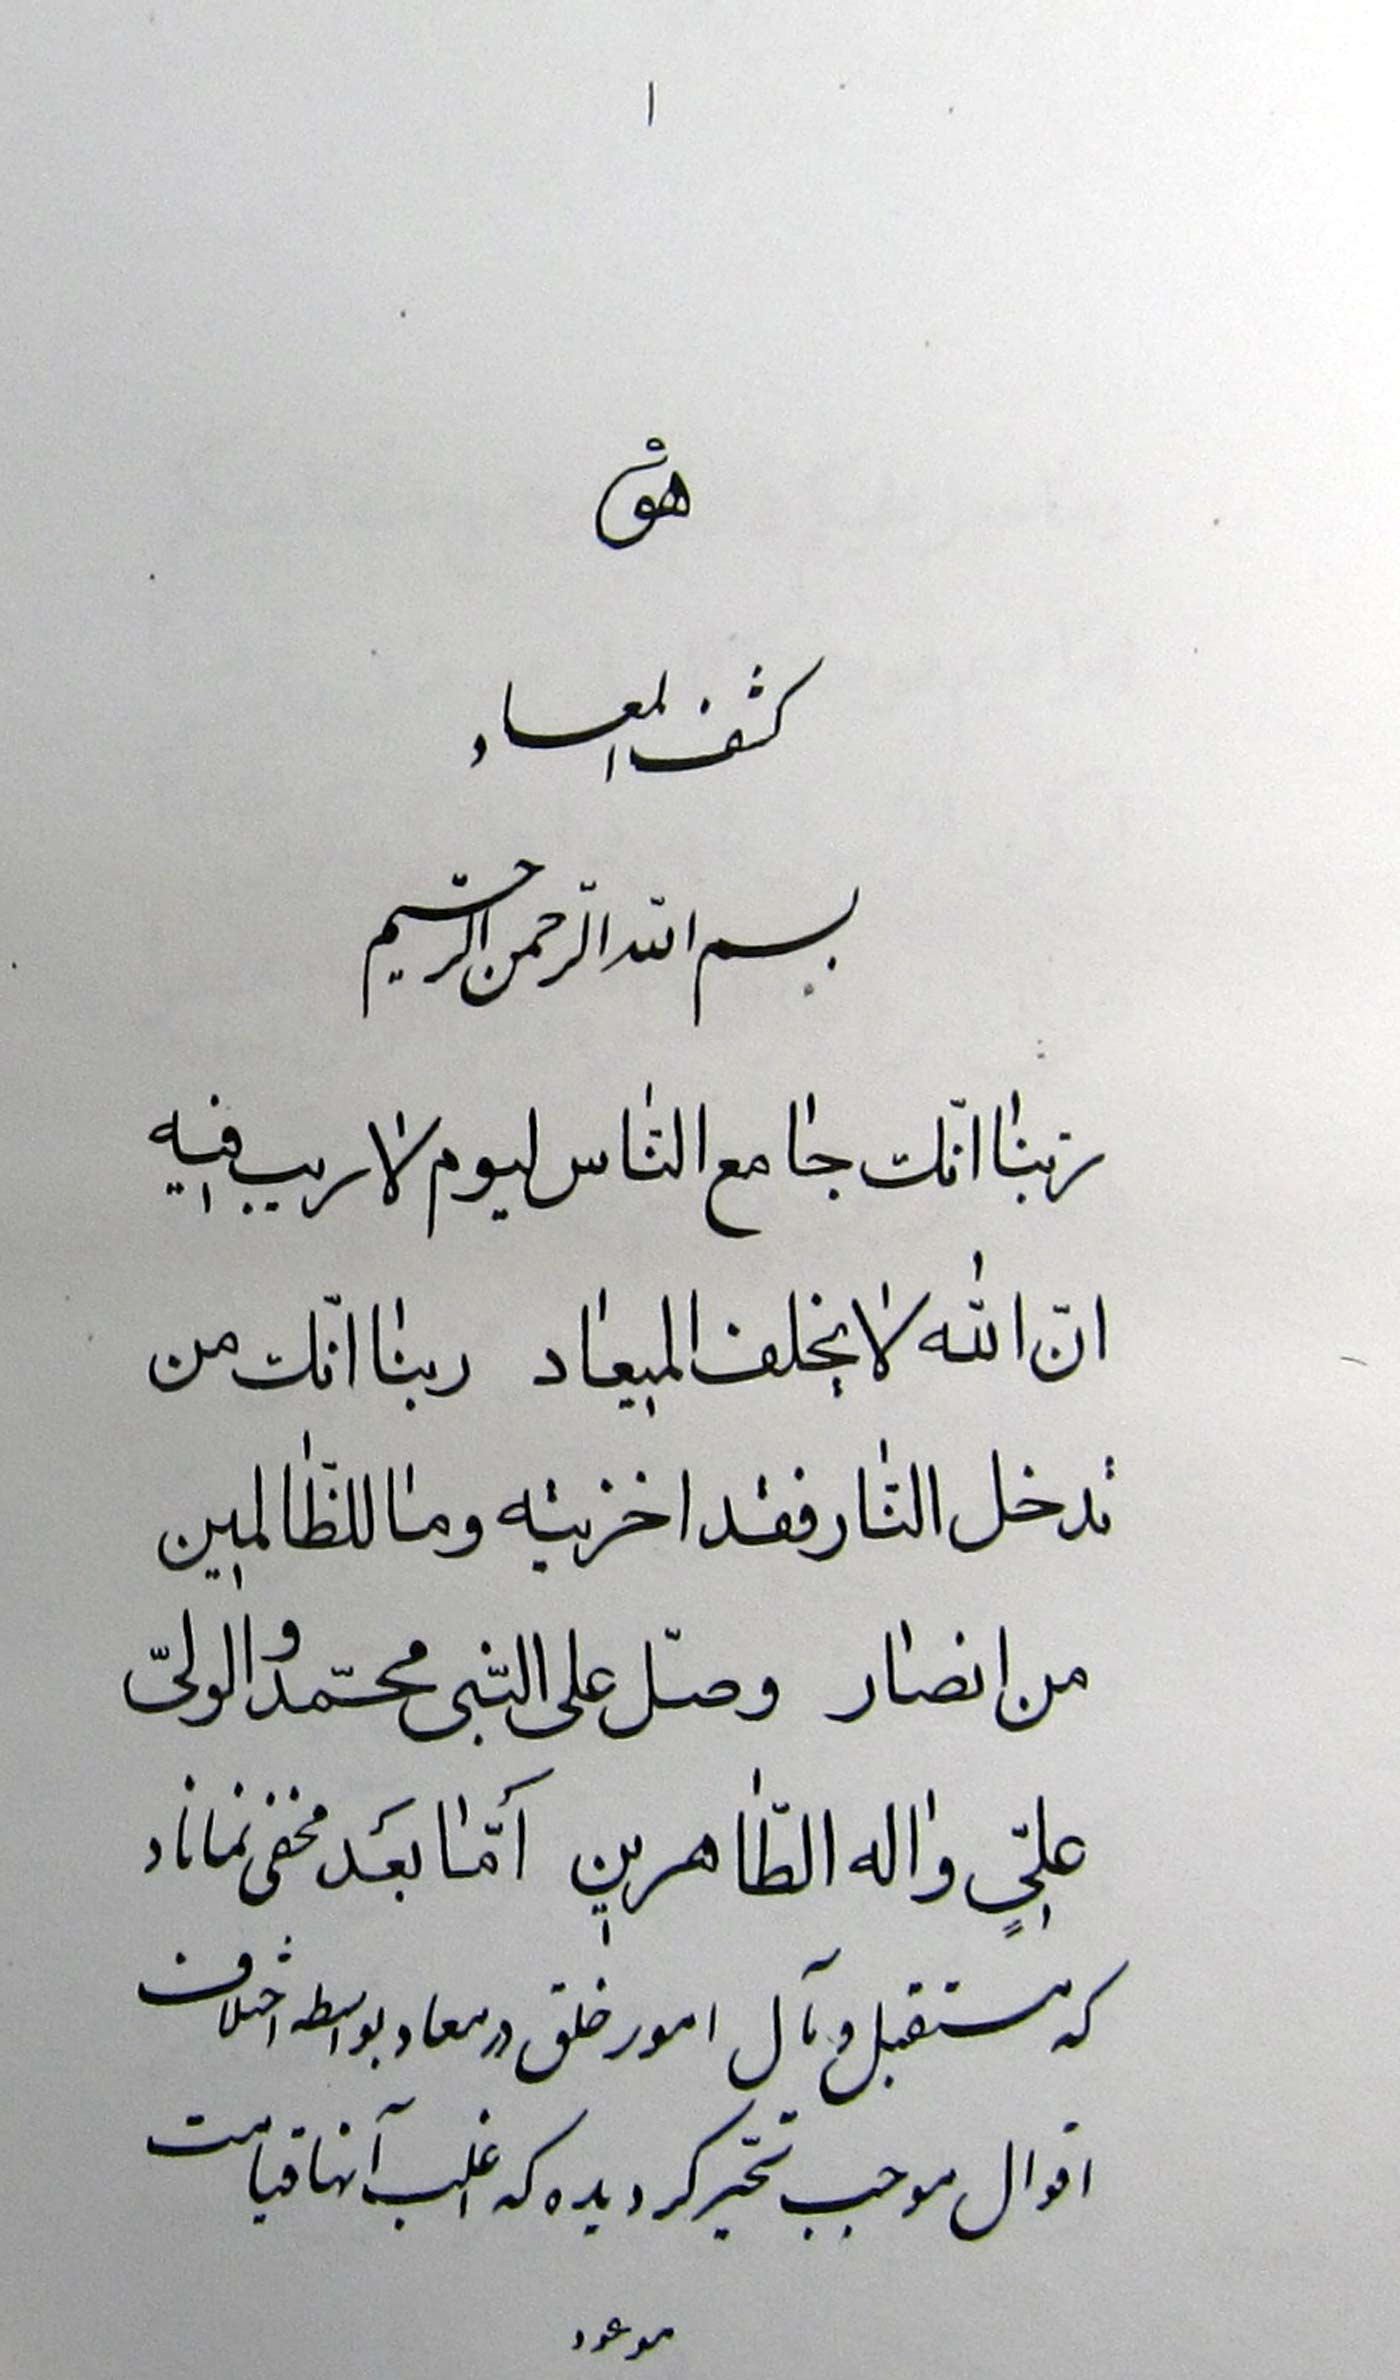 ۱
هو
كشف المعاد
بسم الله الرّحمن الرّحیم
ربّنا انّك جامع النّاس ليوم لا ريب فيه
انّ الله لا يخلف الميعاد ربنا انّك من
تدخل النّار فقد اخزيته وما للظّالمين
من انصار وصلّ على النّبى محمّد والولىّ
علىٍّ واله الطّاهرين أمّا بعَد مخفى نماناد
كه مستقبل و مآل امور خلق در معاد بواسطه اختلاف
اقوال موجب تحيّر گرديده كه اغلب آنها قيامت
موعود